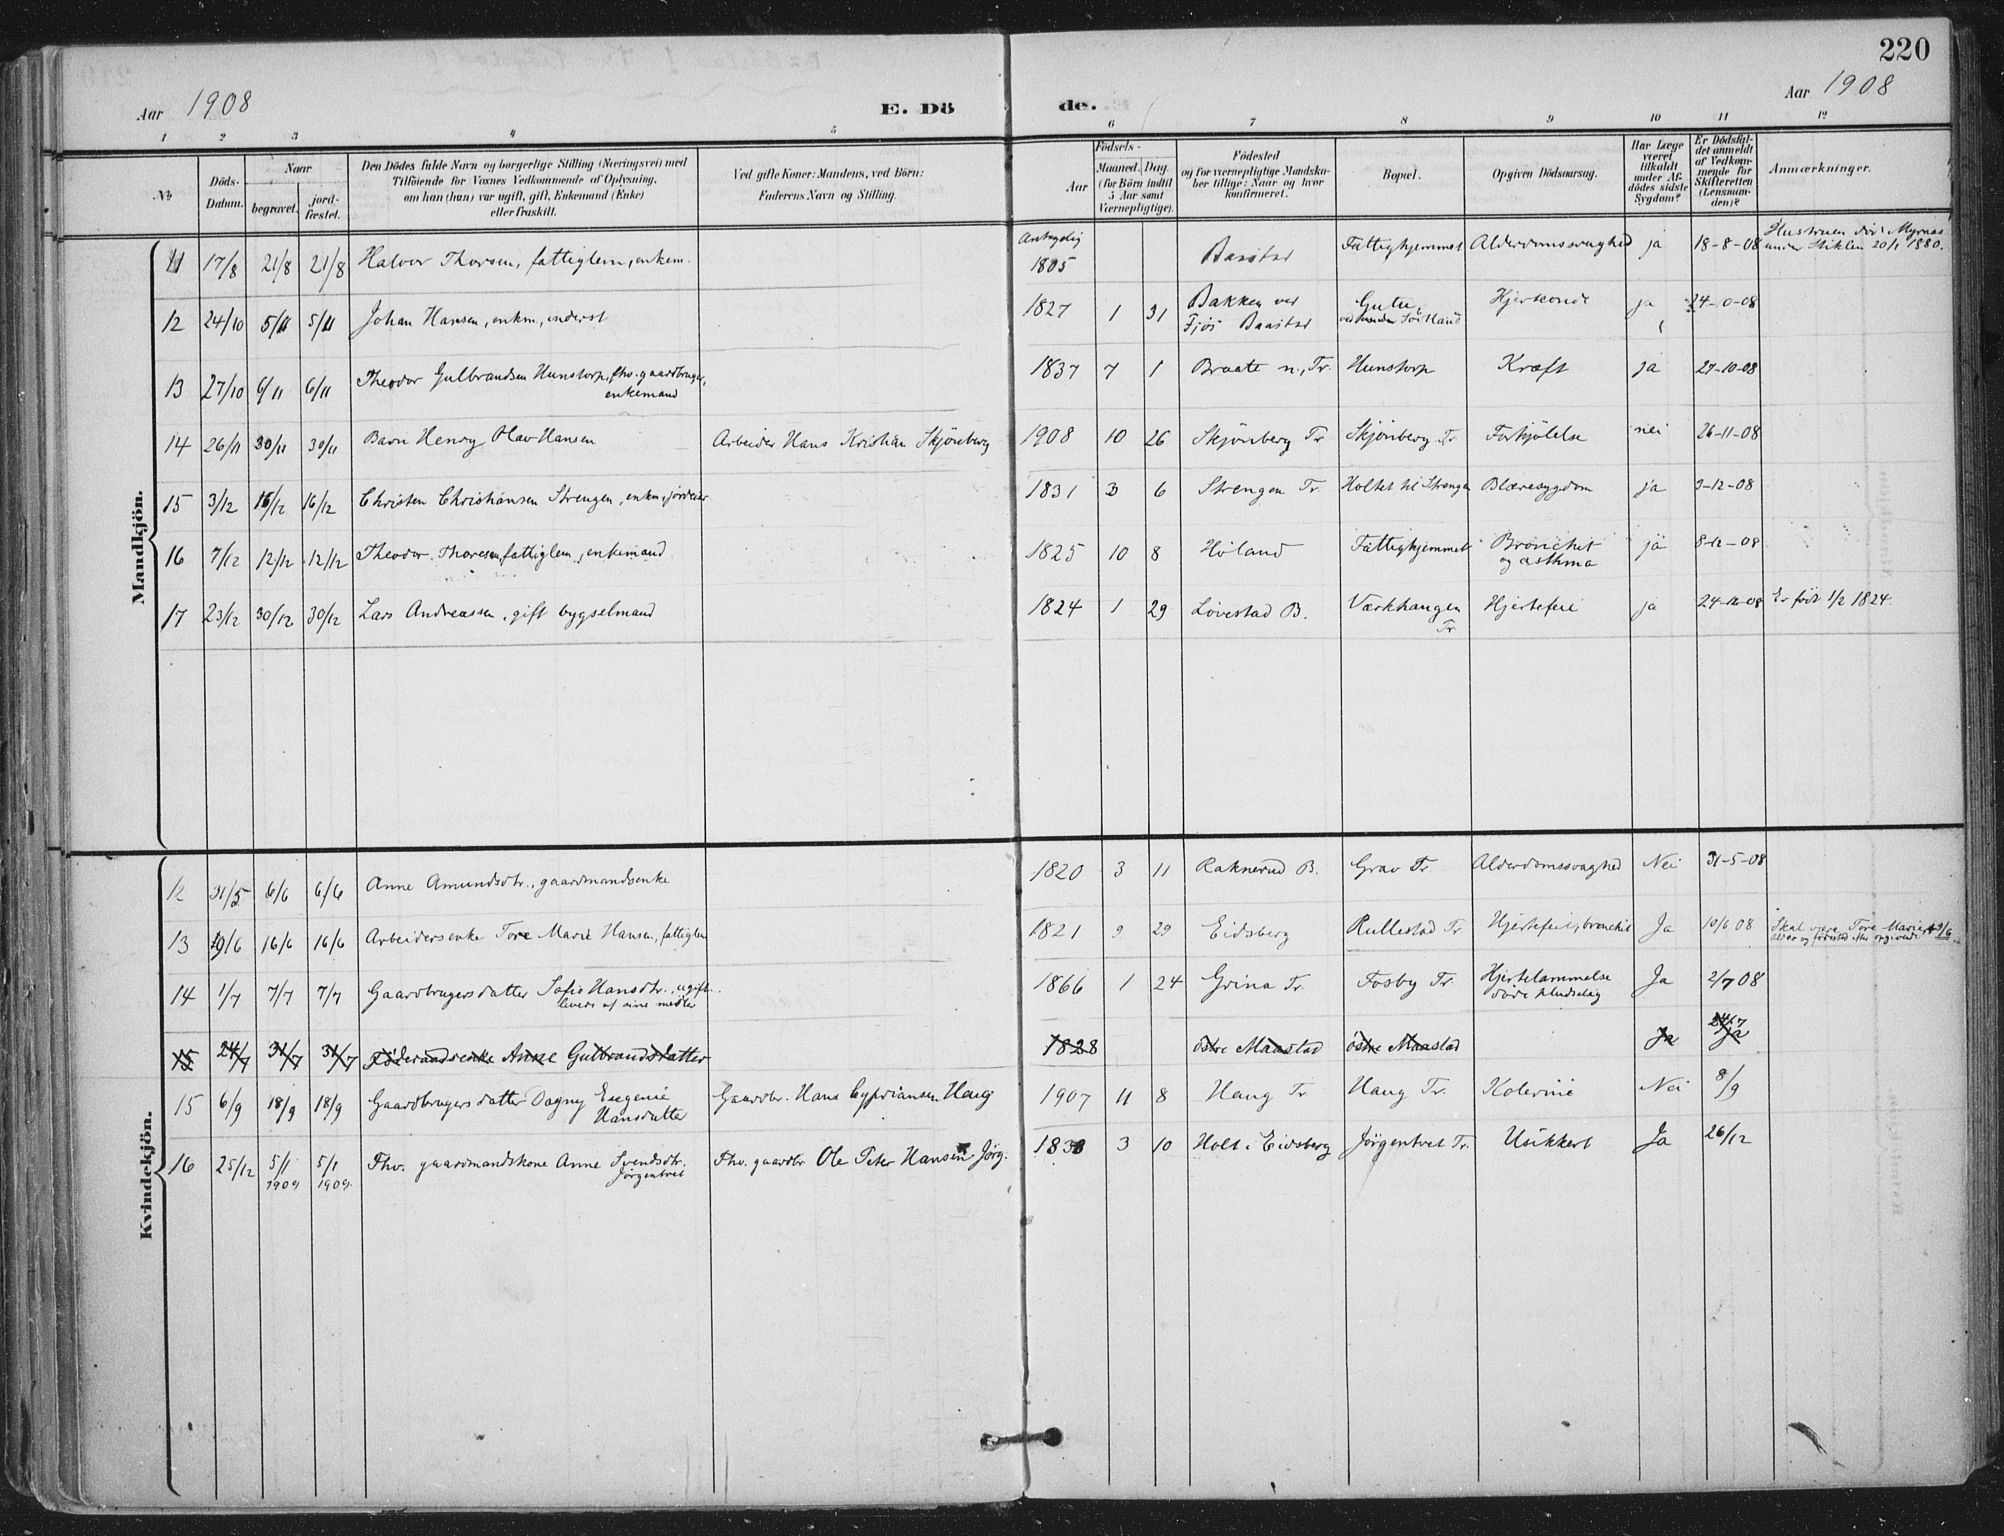 220
Aar 1908
E. Dö
de.
Aar 1908
1 2 3 4 5 6 7 8 9 10 11 12
№
Döds-Datum.
Naar
begravet.
jord-fæstet.
Den Dödes fulde Navn og borgerlige Stilling (Næringsvei) med
Tilföiende for Voxnes Vedkommende af Oplysning,
om han (hun) var ugift, gift, Enkemand (Enke)
eller fraskilt.
Ved gifte Koner: Mandens, ved Börn:
Faderens Navn og Stilling.
Födsels-
Aar
Maaned. Dag.
(for Börn indtil
5 Aar samt
Værnepligtige).
Födested
og for værnepligtige Mandska-
ber tillige: Naar og hvor
konfirmeret.
Bopæl.
Opgiven Dödsaarsag.
Har Læge
været
tilkaldt
under Af-
dödes sidste
Sygdom?
Er Dödsfal-
det anmeldt
af Vedkom-
mende for
Skifteretten
(Lensman-
den)?
Anmærkninger.
Mandkjön.
11 17/8 21/8 21/8 Halvor Thorsen, fattiglem, enkem. Antagelig 1805 Baastad Fattighjemmet Alderdomssvaghed ja 18-8-08 Hustruen död i Myrnæs
under Stiklen 20/1 1880.
12 24/10 5/11 5/11 Johan Hansen, enkm, inderst 1827 1 31 Bakken ved Gutu, Hjerteonde ja 24-10-08
Fjös Baastad
13 27/10 6/11 6/11 Theodor Gulbrandsen Hunstorp, fhv. gaardbruger, 1837 7 1 Braate n., Tr. Hunstorp Kræft ja 27-10-08
enkemand
14 26/11 30/11 30/11 Barn Henry Olav Hansen Arbeider Hans Kristian Skjönberg 1908 10 26 Skjönberg Tr Skjönberg Tr Forkjölelse nei 26-11-08
15 3/12 16/12 16/12 Christen Christiansen Strengen, enkm, jordeier 1831 3 6 Strengen Tr. Holtet til Strengen Blæresygdom ja 3-12-08
16 7/12 12/12 12/12 Theodor Thoresen, fattiglem, enkemand 1825 10 8 Höland Fattighjemmet Bronchit ja 8-12-08
og asthma
17 23/12 30/12 30/12 Lars Andreassen, gift bygselmand 1824 1 29 Lövestad B. Værkhaugen Hjertefeil ja 24-12-08 Er född 1/2 1824.
Tr.
Kvindekjön.
12 31/5 6/6 6/6 Anne Amundsdtr., gaardmandsenke 1820 3 11 Raknerud B. Grav Tr. Alderdomssvaghed Nei 31-5-08
13 9/6 16/6 16/6 Arbeidersenke Tore Marie Hansen, fattiglem 1821 9 29 Eidsberg Rullestad Tr. Hjertefeil, bronchit Ja 10/6 08 Skal være Tore Marie, † 9/6
alder og födested efter opgivende.
14 1/7 7/7 7/7 Gaardbrugersdatter Sofie Hansdtr., ugift. 1866 1 24 Grina Tr. Fosby Tr. Hjertelammelse Ja 2/7 08
levede af sine midler döde pludselig
15 24/7 31/7 31/7 Föderaadsenke Anne Gulbrandsdatter 1828 östre Maastad östre Maastad Ja 24/7 ja
15 6/9 18/9 18/9 Gaardbrugersdatter Dagny Eugenie Gaardbr. Hans Cypriansen Haug 1907 11 8 Haug Tr Haug Tr. Kolerine Nei 8/9
Hansdatter
16 25/12 5/1 5/1 Fhv. gaardmandskone Anne Svendsdtr. Fhv. gaardbr Ole Peter Hansen Jörg. 3 10 Holt i Eidsberg Jörgentvet Tr. Usikkert Ja 26/12
1909 1909 Jörgentvet